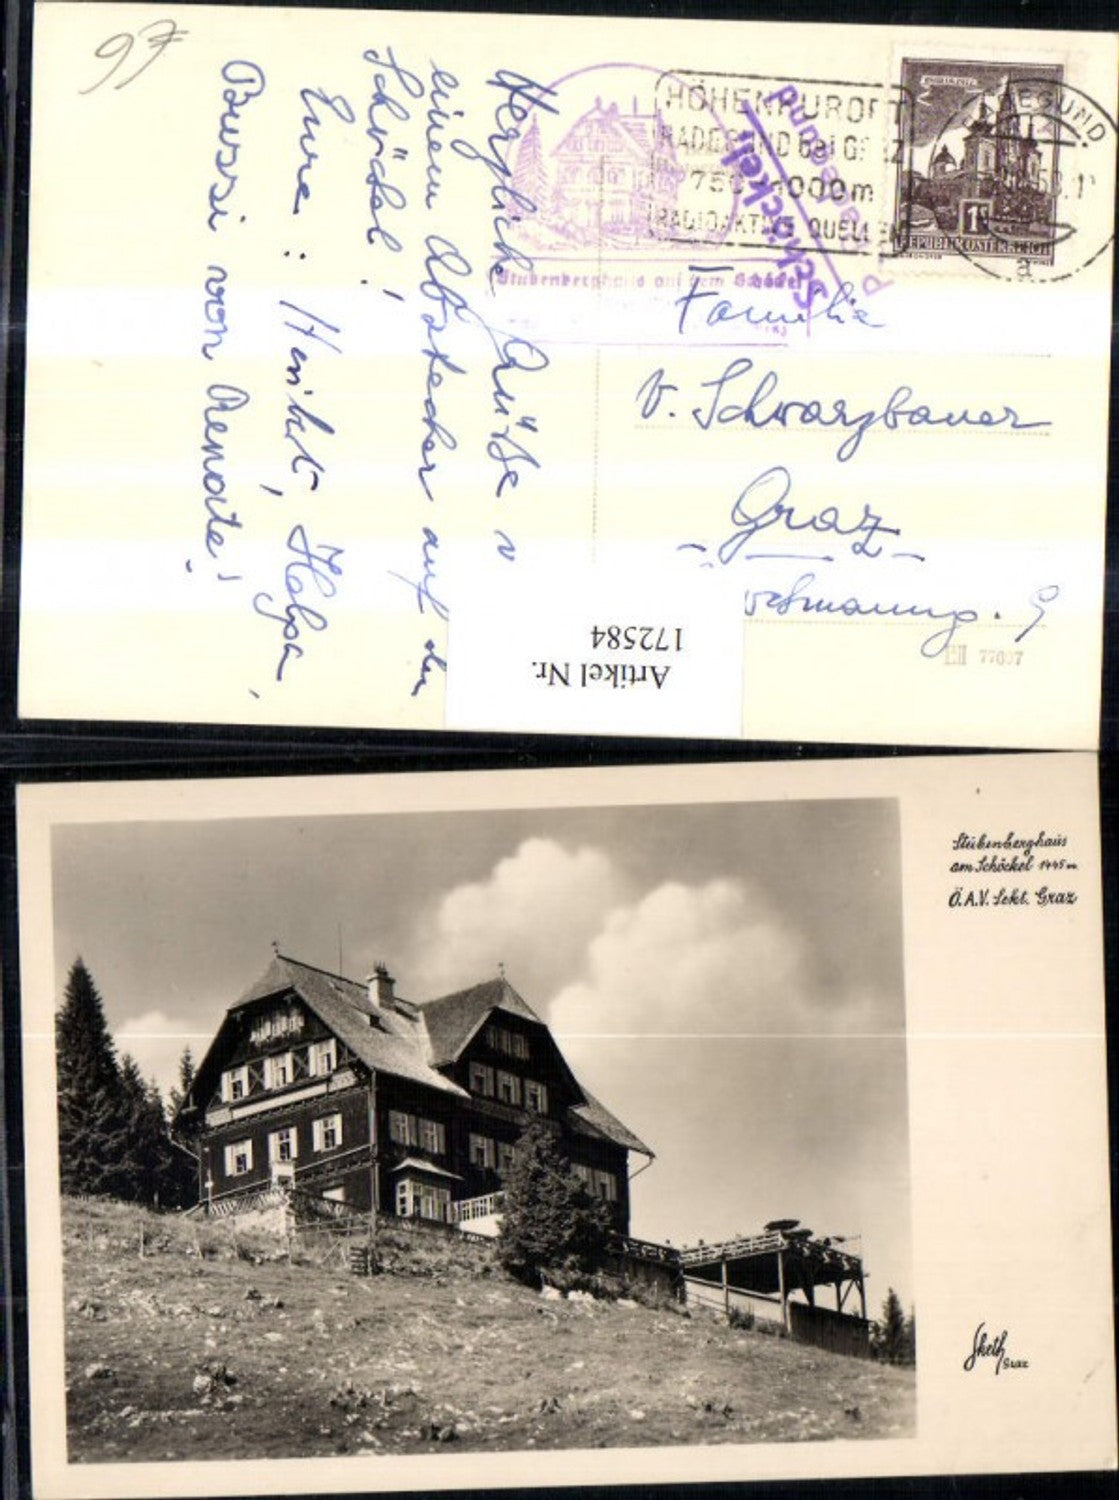 97
Herzliche Grüße v
einem Abstecher auf den
Schöckel!
Eure: Heribert, Helga,
Bussi von Renate!
Stubenberghaus auf dem Schöckel
HÖHENKURORT
RADEGUND bei GRAZ
750-1000m
RADIOAKTIVE QUELLEN
Schöckel
Radegund
RADEGUND
a
1S
REPUBLIK ÖSTERREICH
Familie
V. Schwarzbauer
Graz
9
77607
Artikel Nr.
172584
Stubenberghaus
am Schöckel 1445 m
Ö.A.V. Sekt. Graz
Graz